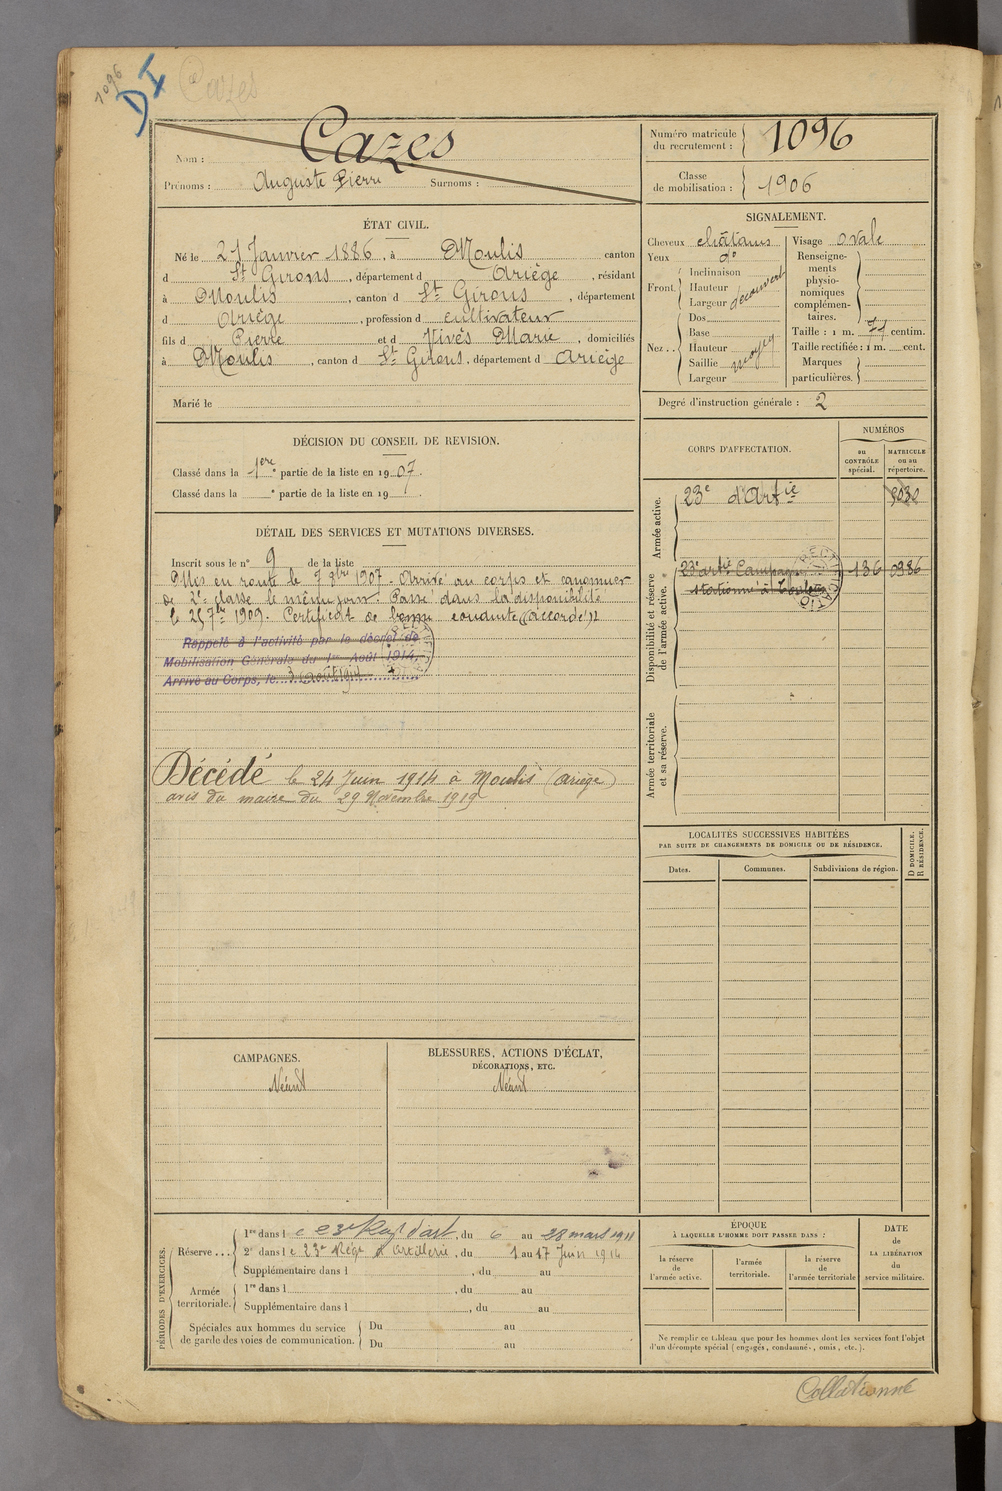 1096
D I
Cazes
Nom : Cazes
Prénoms : Auguste Pierre Surnoms :
Numéro matricule du recrutement : 1096
Classe de mobilisation : 1906
ÉTAT CIVIL.
Né le 21 Janvier 1886, à Moulis canton
d St Girons, département d Ariège, résidant
à Moulis, canton d St Girons, département
d Ariège, profession d cultivateur
fils d Pierre et d Vivès Marie, domiciliés
à Moulis, canton d St Girons, département d Ariège
Marié le
SIGNALEMENT.
Cheveux châtains
Yeux do
Front. Inclinaison
Hauteur
Largeur découvert
Nez .. Dos
Base
Hauteur
Saillie moyen
Largeur
Visage ovale
Renseigne-
ments
physio-
nomiques
complémen-
taires.
Taille : 1 m. 71 centim.
Taille rectifiée : 1 m. cent.
Marques
particulières.
Degré d'instruction générale : 2
DÉCISION DU CONSEIL DE REVISION.
Classé dans la 1ere partie de la liste en 1907.
Classé dans la e partie de la liste en 19
DÉTAIL DES SERVICES ET MUTATIONS DIVERSES.
Inscrit sous le n° 9 de la liste
Mis en route le 7 8bre 1907 - Arrivé au corps et canonnier
de 2e classe le même jour. Passé dans la disponibilité
le 25 7bre 1909. Certificat de bonne conduite "accordé".
Rappelé à l'activité par le décret de
Mobilisation Générale du 1er Août 1914,
Arrivé au Corps, le 3 Août 1914
Décédé le 24 Juin 1914 à Moulis (Ariège)
avis du maire du 29 Novembre 1919
CORPS D'AFFECTATION.
NUMÉROS
au CONTRÔLE spécial.
MATRICULE ou au répertoire.
Armée active.
23e d'Artie 9030
Disponibilité et réserve de l'armée active.
23e artie Campagne 136 0986
stationné à Toulouse
RECTIFICATION
Armée territoriale et sa réserve.
LOCALITÉS SUCCESSIVES HABITÉES
PAR SUITE DE CHANGEMENTS DE DOMICILE OU DE RÉSIDENCE.
Dates. Communes. Subdivisions de région.
D DOMICILE.
R RÉSIDENCE.
CAMPAGNES.
Néant
BLESSURES, ACTIONS D'ÉCLAT,
DÉCORATIONS, ETC.
Néant
PÉRIODES D'EXERCICES.
Réserve ... 1re dans l e 23e Reg d'art, du 6 au 28 mars 1911
2e dans l e 23e Rég d'artillerie, du 1 au 17 Juin 1914
Supplémentaire dans l , du au
Armée territoriale. 1re dans l , du au
Supplémentaire dans l , du au
Spéciales aux hommes du service
de garde des voies de communication.
Du au
Du au
ÉPOQUE
À LAQUELLE L'HOMME DOIT PASSER DANS :
la réserve de l'armée active.
l'armée territoriale.
la réserve de l'armée territoriale
DATE
de
LA LIBÉRATION
du
service militaire.
Ne remplir ce tableau que pour les hommes dont les services font l'objet
d'un décompte spécial (engagés, condamnés, omis, etc.).
Collationné